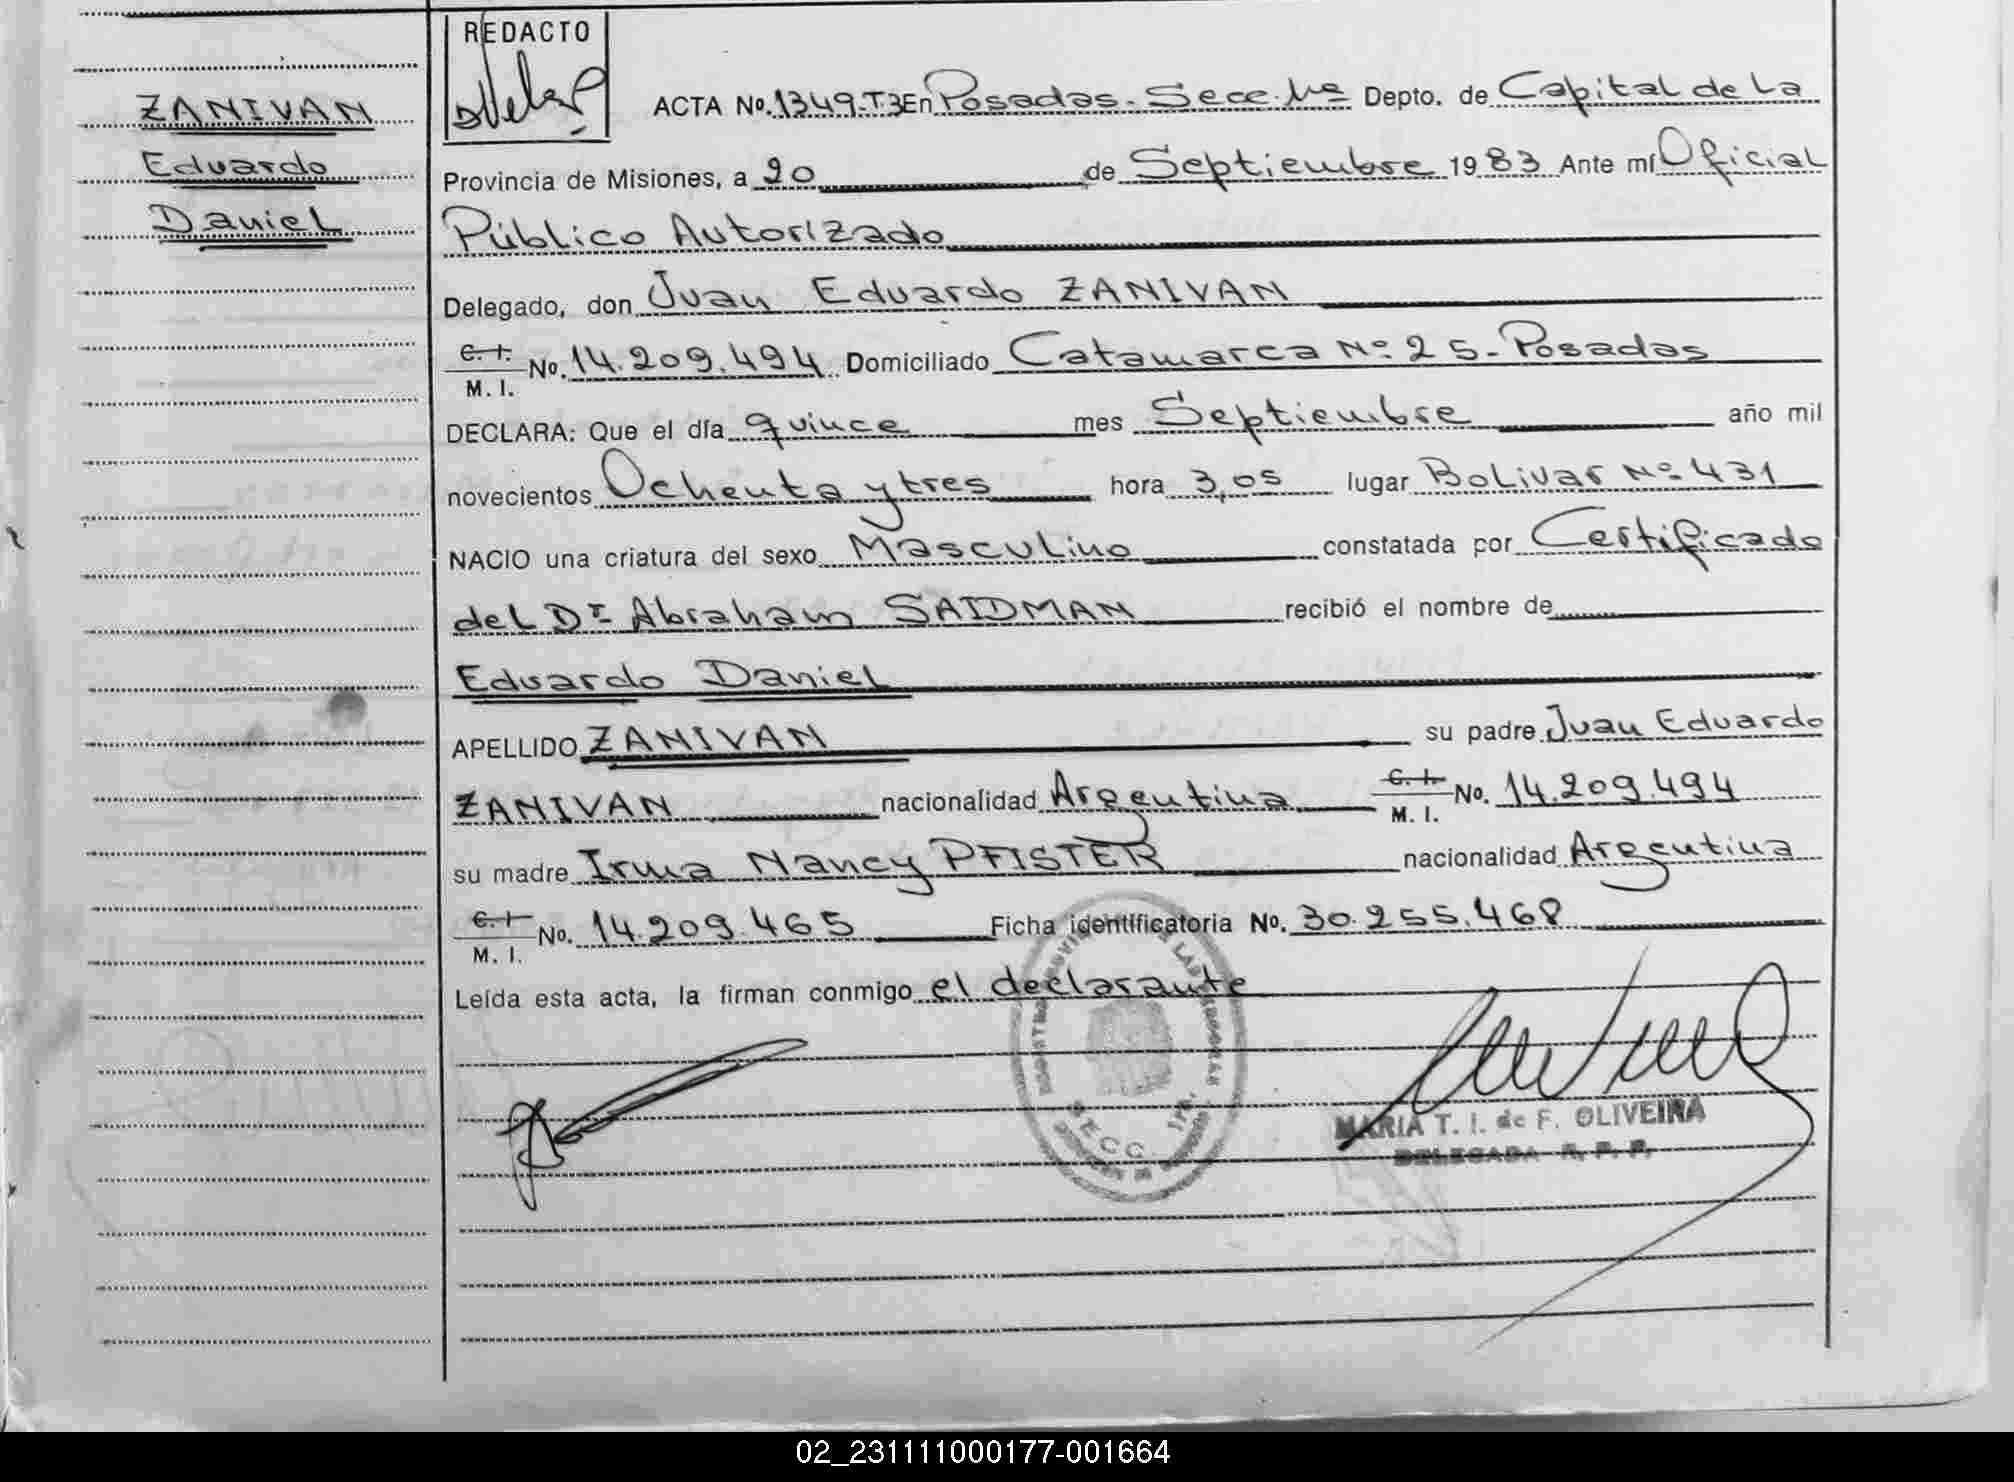 REDACTO
ZANIVAN
Eduardo
Daniel
ACTA No. 1349-T.3 En Posadas - Secc. 1ra Depto. de Capital de La
Provincia de Misiones, a 20 de Septiembre 1983 Ante mí Oficial
Público Autorizado
Delegado, don Juan Eduardo ZANIVAN
C. I. M. I. No. 14.209.494 Domiciliado Catamarca No 25 - Posadas
DECLARA: Que el día quince mes Septiembre año mil
novecientos Ochenta y tres hora 3,05 lugar Bolivar No 431
NACIO una criatura del sexo Masculino constatada por Certificado
del Dr Abraham SAIDMAN recibió el nombre de
Eduardo Daniel
APELLIDO ZANIVAN su padre Juan Eduardo
ZANIVAN nacionalidad Argentina C. I. M. I. No. 14.209.494
su madre Irma Nancy PFISTER nacionalidad Argentina
C. I. M. I. No. 14.209.465 Ficha identificatoria No. 30.255.468
Leída esta acta, la firman conmigo el declarante
SECC. 1ra.
MARIA T. I. de F. OLIVEIRA
DELEGADA R. P. P.
02_231111000177-001664